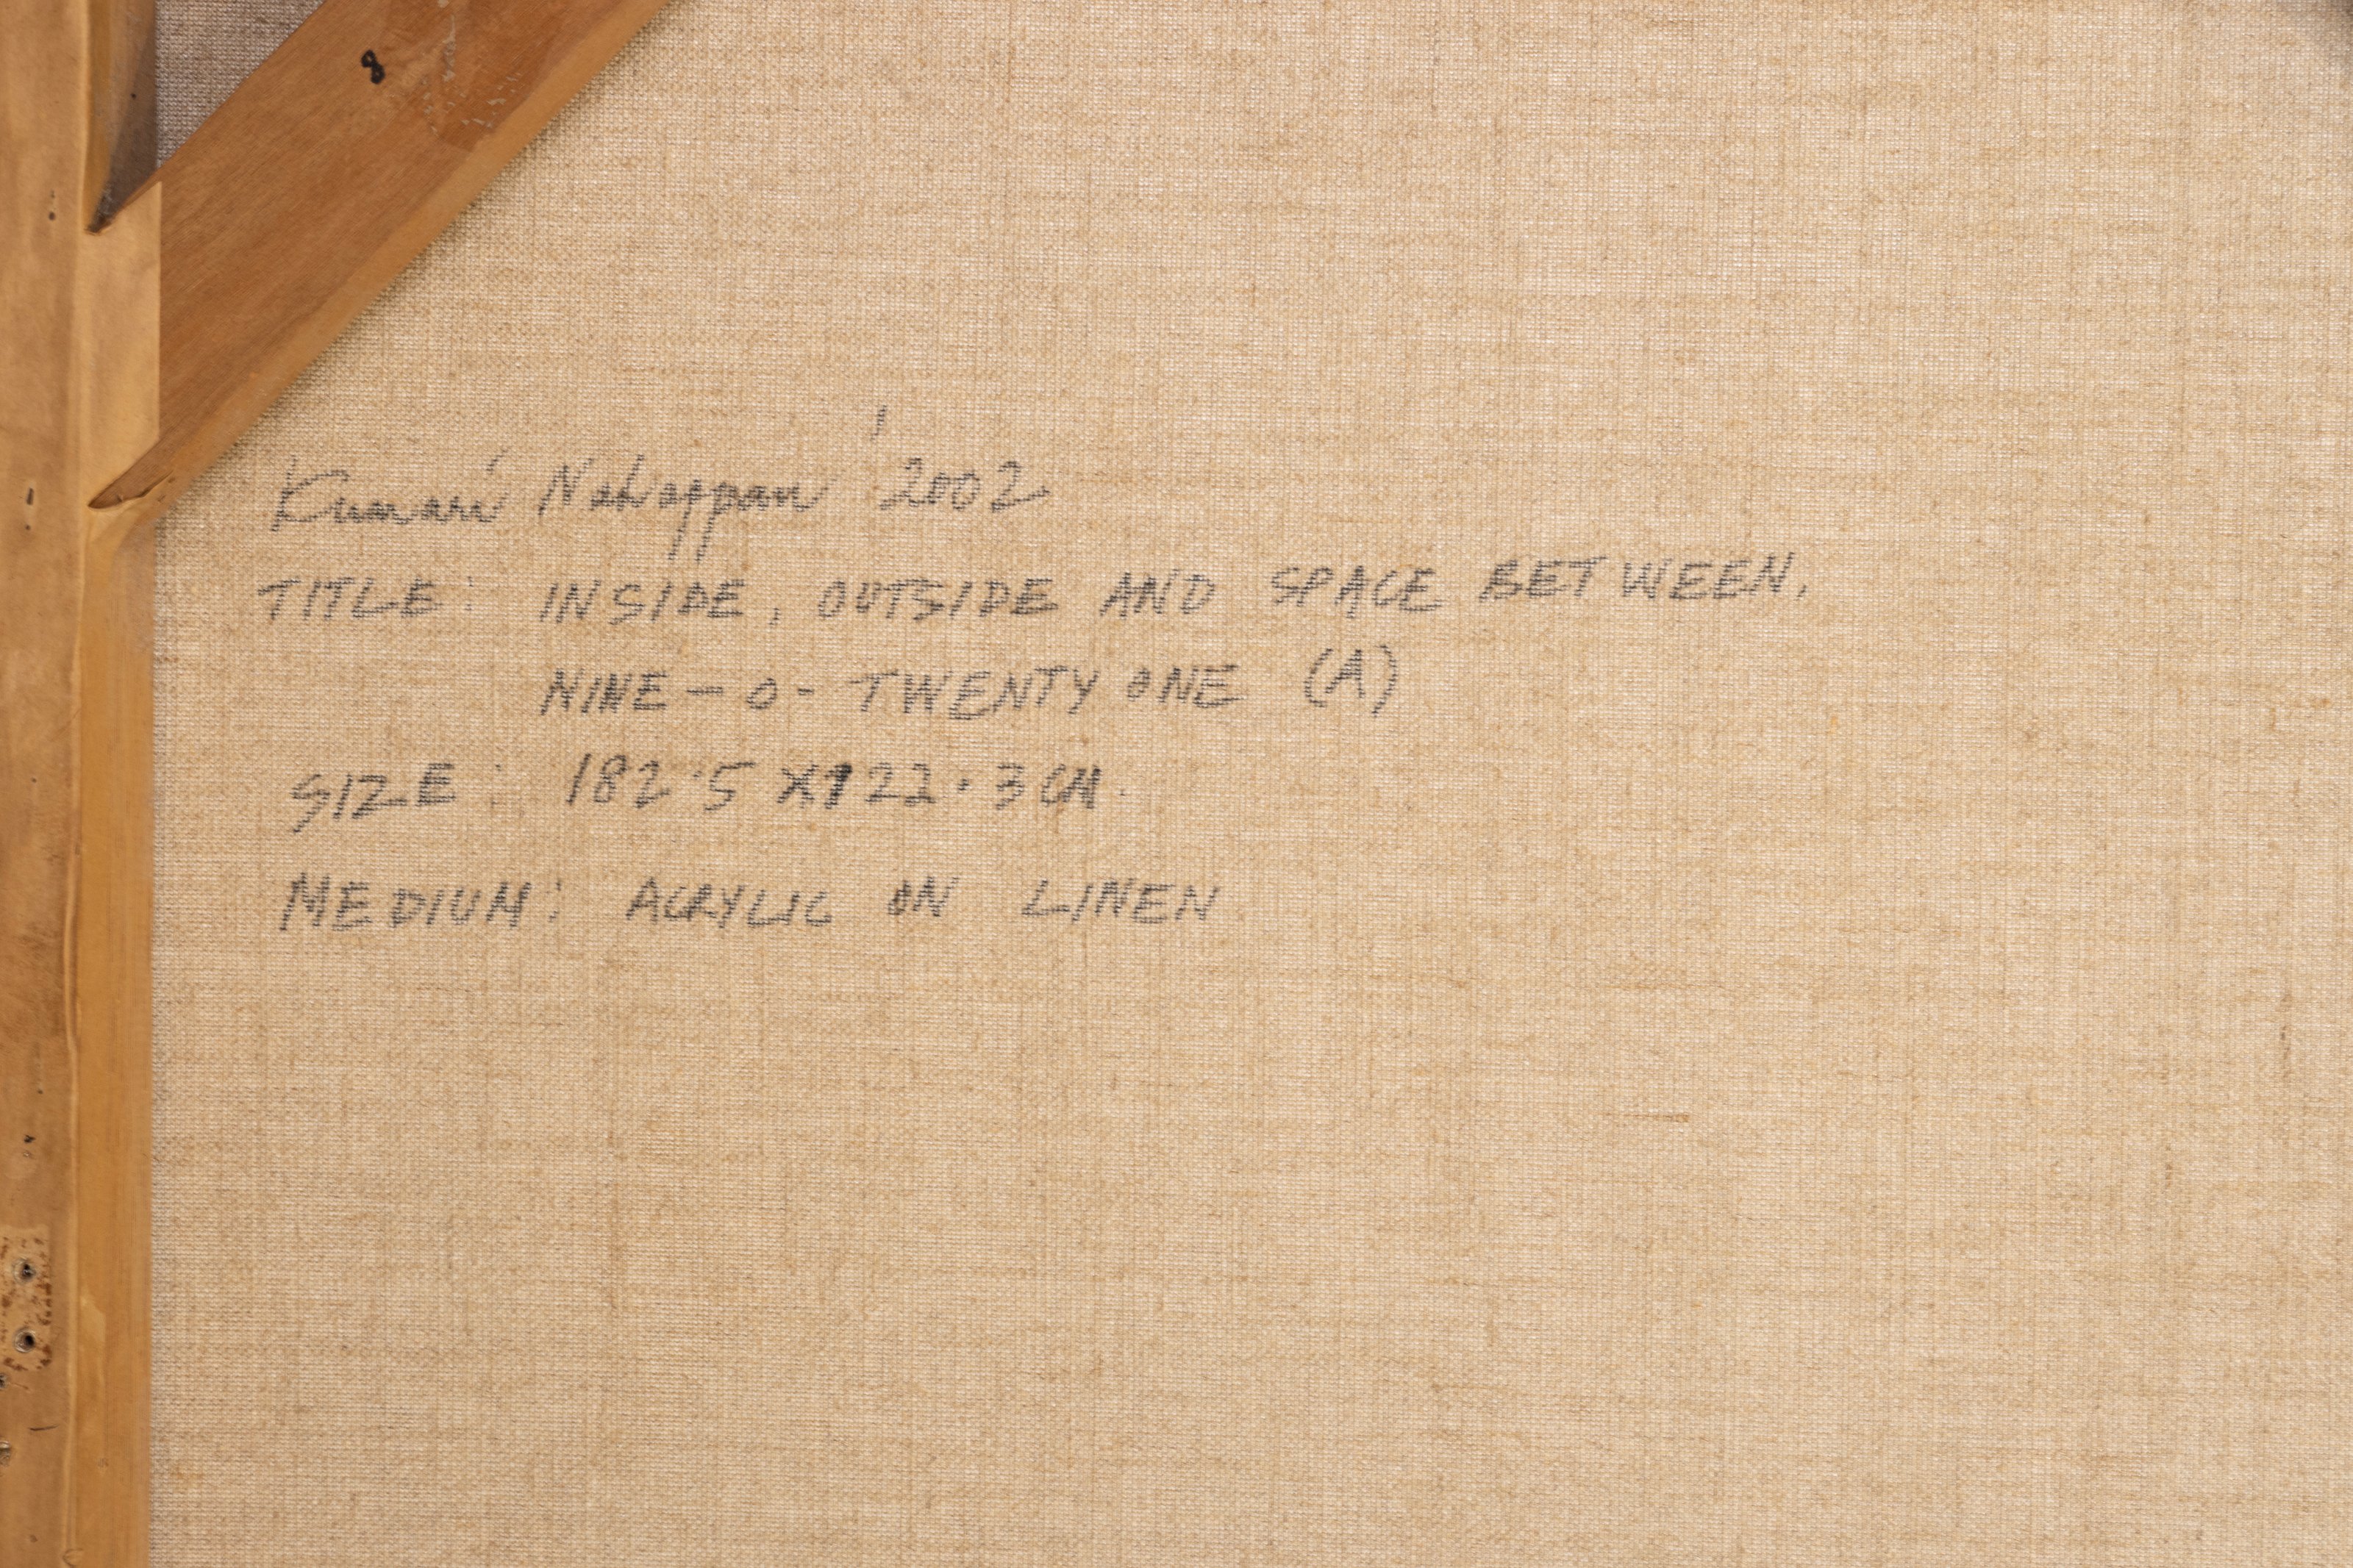 8
Kumari Nahappan '2002
TITLE: INSIDE, OUTSIDE AND SPACE BETWEEN,
NINE-O-TWENTY ONE (A)
SIZE: 182.5 X122.3 CM.
MEDIUM: ACRYLIC ON LINEN